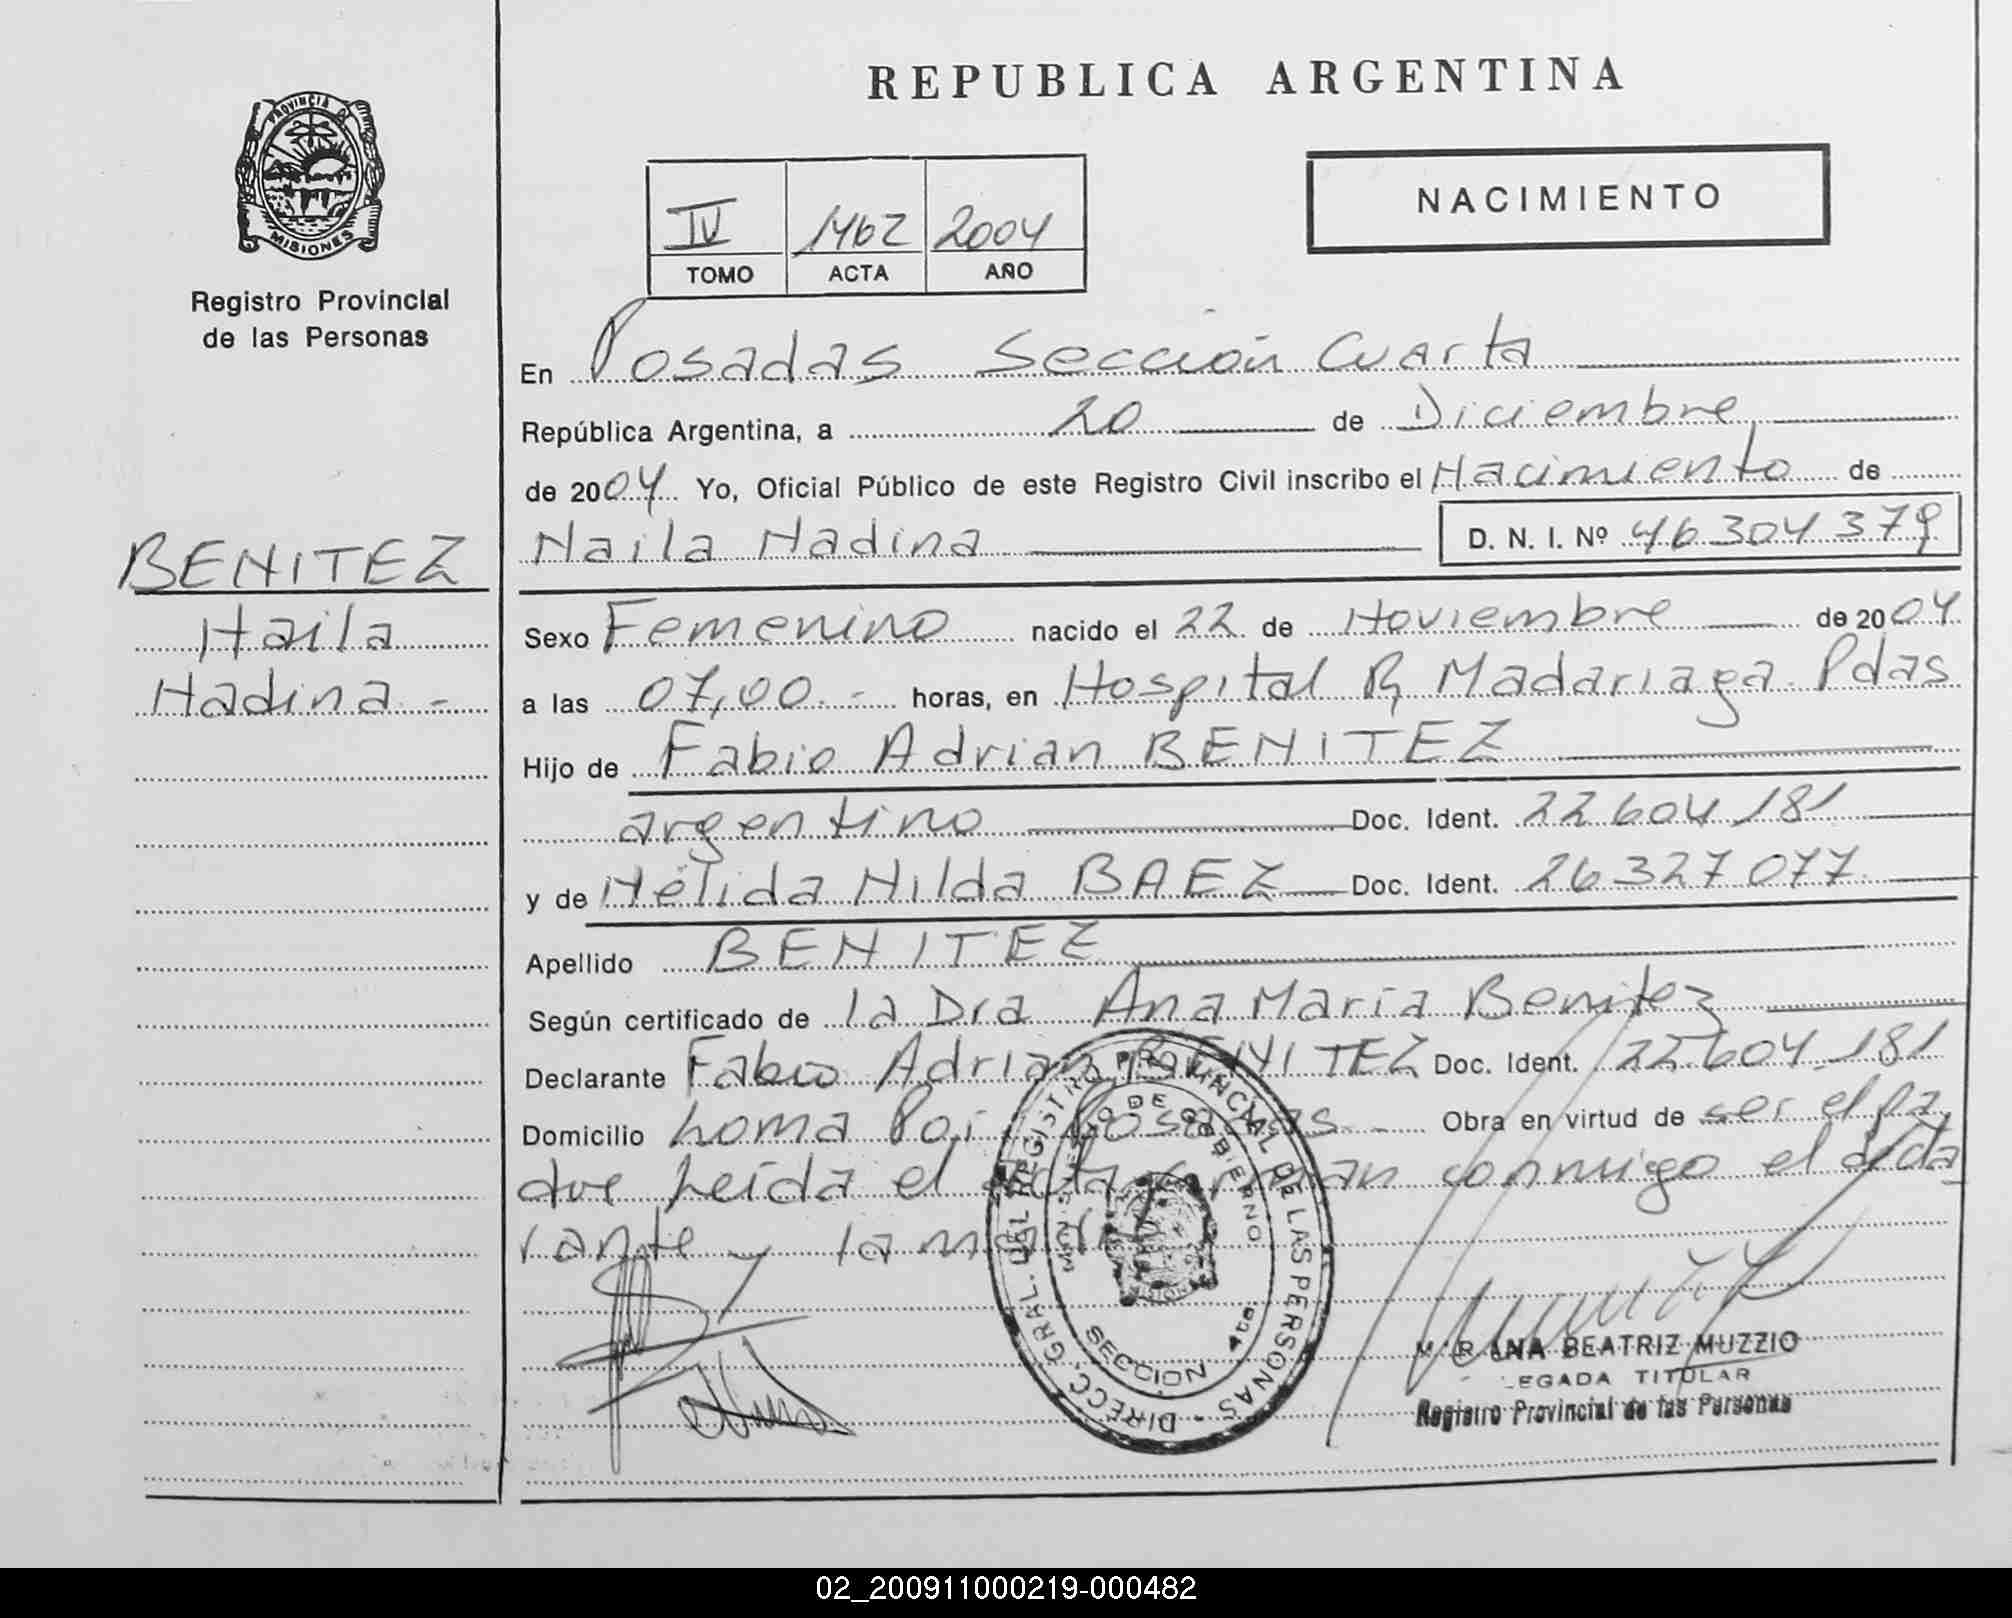 REPUBLICA ARGENTINA
PROVINCIA DE
MISIONES
Registro Provincial
de las Personas
IV 1462 2004
TOMO ACTA AÑO
NACIMIENTO
En Posadas Sección Cuarta
República Argentina, a 20 de Diciembre
de 2004 Yo, Oficial Público de este Registro Civil inscribo el Nacimiento de
Naila Nadina D. N. I. Nº 46 304 379
BENITEZ
Naila
Nadina -
Sexo Femenino nacido el 22 de Noviembre de 2004
a las 07,00.- horas, en Hospital R, Madariaga Pdas
Hijo de Fabio Adrian BENITEZ
argentino Doc. Ident. 22 604 181
y de Nélida Nilda BAEZ Doc. Ident. 26 327 077
Apellido BENITEZ
Según certificado de la Dra Ana María Benitez
Declarante Fabio Adrian BENITEZ Doc. Ident. 22 604 181
Domicilio Loma Poi Posadas - Obra en virtud de ser el pa
dre Leída el acta firman conmigo el decla
rante y la madre
DIRECC. GRAL. DEL REGISTRO PROVINCIAL DE LAS PERSONAS
MINISTERIO DE GOBIERNO
MISIONES
SECCION 4ta.
ANA BEATRIZ MUZZIO
EGADA TITULAR
Registro Provincial de las Personas
02_200911000219-000482